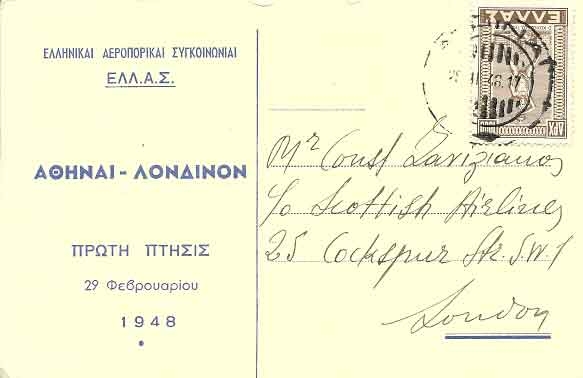 ΕΛΛΗΝΙΚΑΙ ΑΕΡΟΠΟΡΙΚΑΙ ΣΥΓΚΟΙΝΩΝΙΑΙ
ΕΛΛ.Α.Σ.
ΑΘΗΝΑΙ - ΛΟΝΔΙΝΟΝ
ΠΡΩΤΗ ΠΤΗΣΙΣ
29 Φεβρουαρίου
1948
ΕΛΛΑΣ
ΔΡΧ
1000
Mr Const
c/o Scottish Airlines
25 Cockspur Str. S.W.1
London